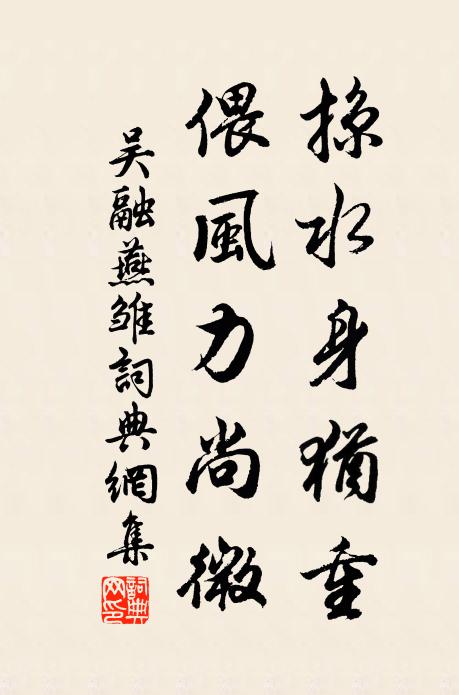 掠水身猶重
偎風力尚微
吳融燕雛詞典網集
詞典网印